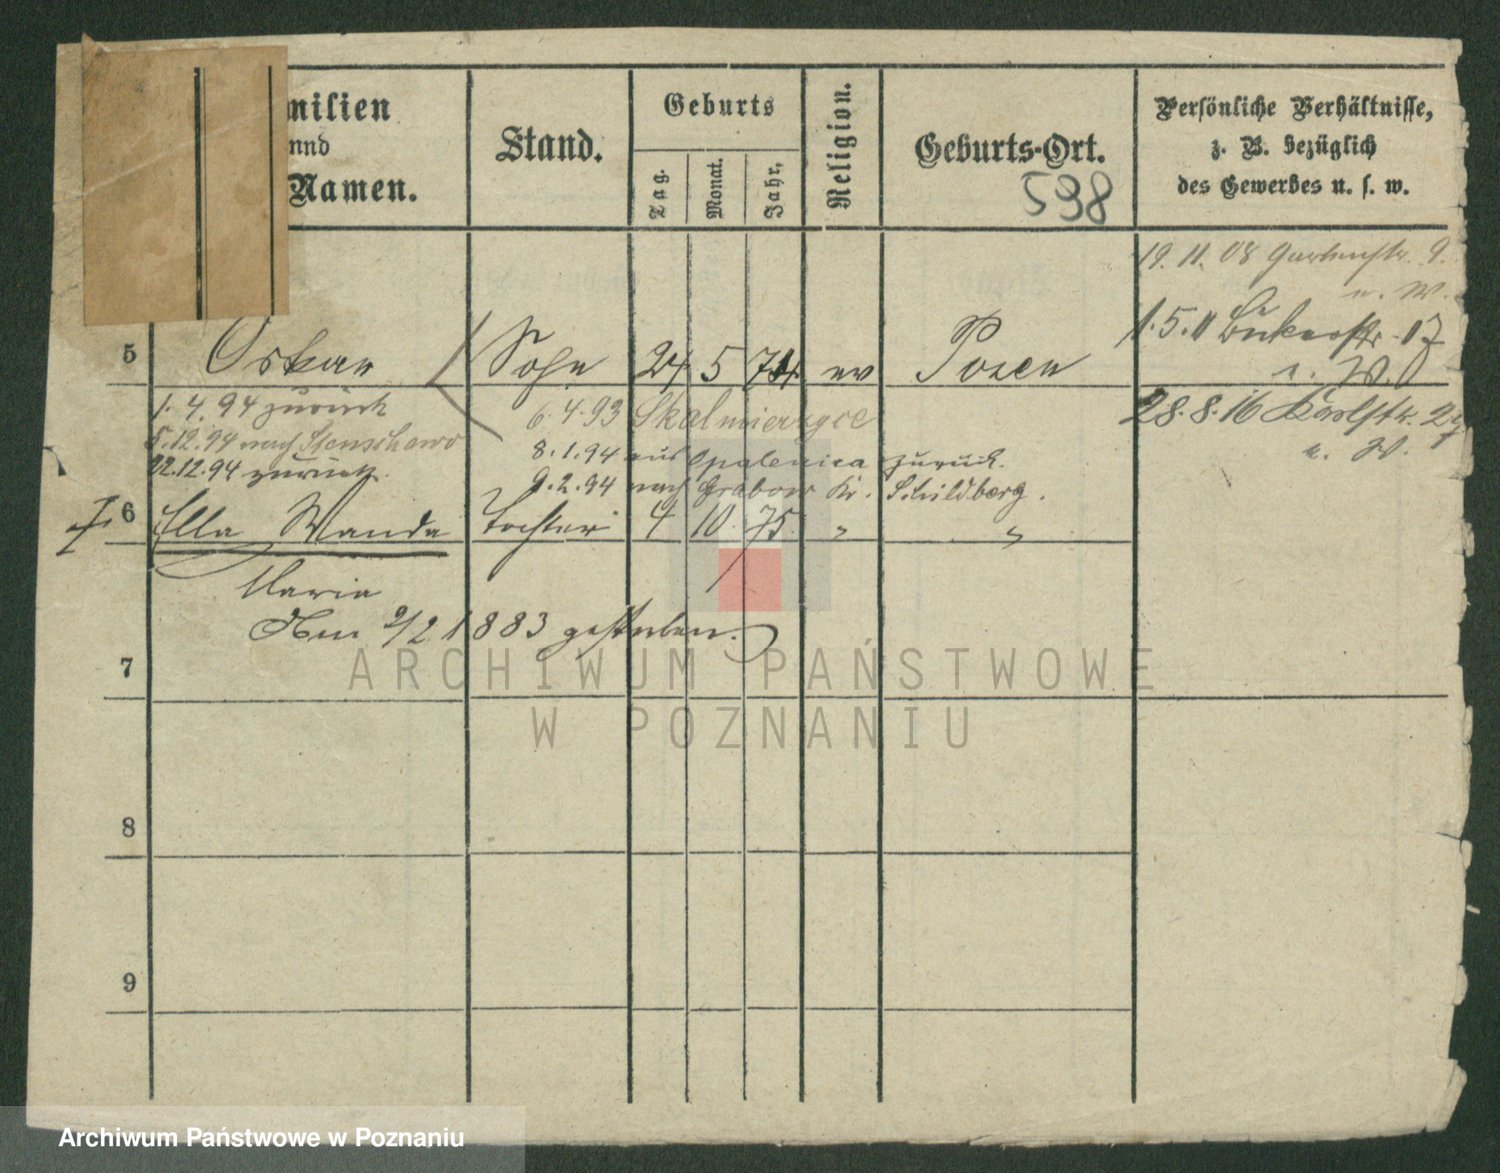 milien
und
Namen.
Stand.
Geburts
Tag.
Monat.
Jahr.
Religion.
Geburts-Ort.
598
Persönliche Verhältnisse,
z. B. bezüglich
des Gewerbes u. s. w.
19. 11. 08 Gartenstr. 9.
u. W.
1. 5. 11 Bukerstr. 17
u. W.
5 Oskar Sohn 24 5 74 ev Posen
28. 8. 16 Karlstr. 27
u. W.
1. 4. 94 zurück
6. 4. 93 Skalmierzyce
5. 12. 94 nach Stenschewo
8. 1. 94 aus Opalenica zurück.
22. 12. 94 zurück.
9. 2. 94 nach Grabow Kr. Schildberg.
6 Ella Wanda Tochter 4 10. 75. " "
Maria
Am 9/2 1883 gestorben.
7
8
9
ARCHIWUM PAŃSTWOWE
W POZNANIU
Archiwum Państwowe w Poznaniu